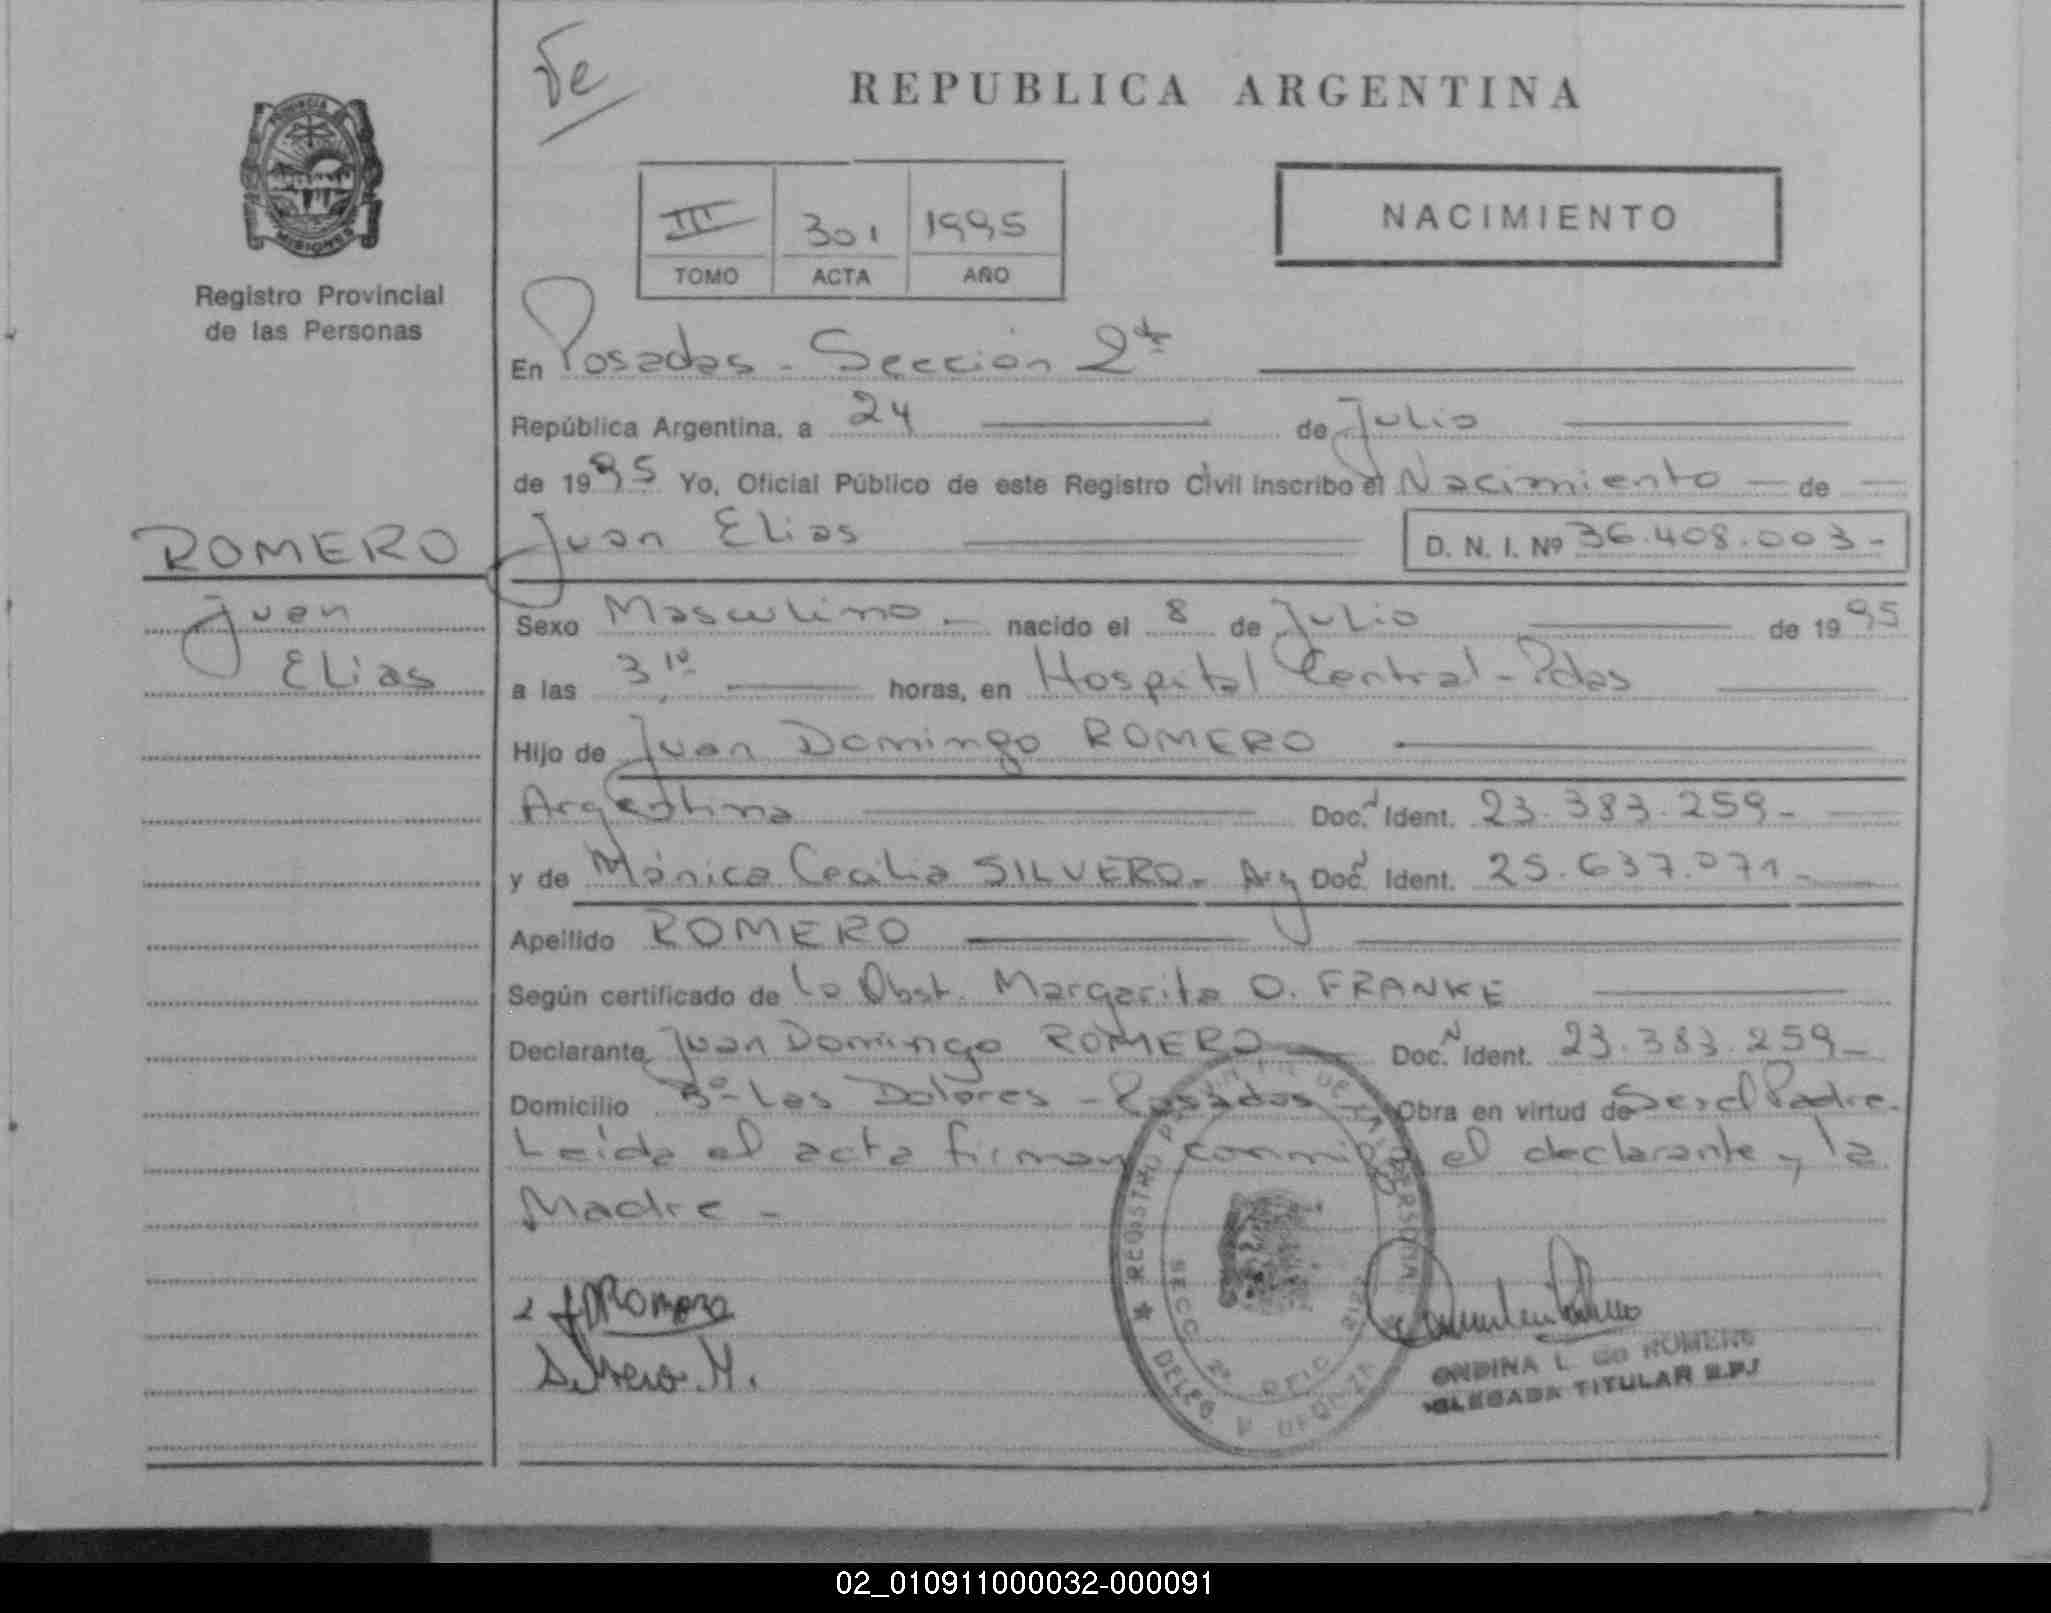 REPUBLICA ARGENTINA
PROVINCIA
MISIONES
Registro Provincial
de las Personas
III 301 1995
TOMO ACTA AÑO
NACIMIENTO
En Posadas - Sección 2ª
República Argentina, a 24 de Julio
de 1995 Yo, Oficial Público de este Registro Civil inscribo el Nacimiento de
ROMERO
Juan
Elias
Juan Elias D. N. I. Nº 36.408.003-
Sexo Masculino - nacido el 8 de Julio de 1995
a las 3,10 horas, en Hospital Central - Pdas
Hijo de Juan Domingo ROMERO
Argentina Doc. Ident. 23.383.259-
y de Mónica Cecilia SILVERO - Arg Doc. Ident. 25.637.071-
Apellido ROMERO
Según certificado de la Obst. Margarita O. FRANKE
Declarante Juan Domingo ROMERO Doc. Ident. 23.383.259-
Domicilio Bº Los Dolores - Posadas - Obra en virtud de Ser el Padre.
Leída el acta firman conmigo el declarante y la
Madre -
JDRomero
Silvero M.
ONDINA L. de ROMERO
DELEGADA TITULAR R.P.J
02_010911000032-000091